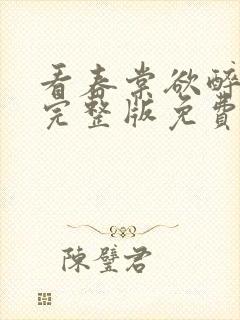 看春棠欲醉
完整版免費
陳璧君